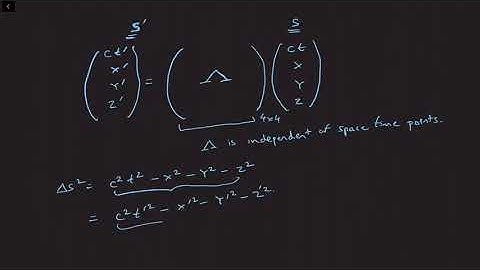 S' S
( ct' x' Y' z' ) = ( Λ ) ( ct x Y z )
4x4
Λ is independent of space time points.
Δs² = c²t² - x² - Y² - z²
= c²t'² - x'² - Y'² - z'²